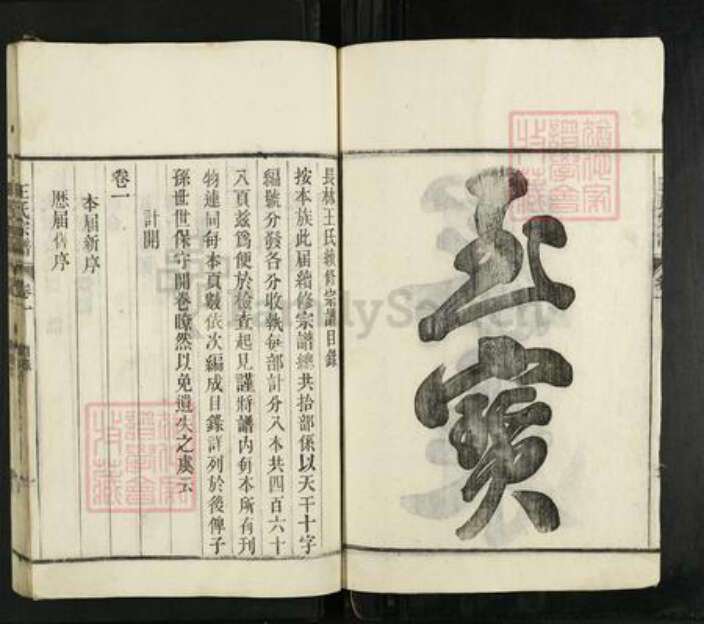 寶
長林王氏續修宗譜目錄
按本族此届續修宗譜總共拾部係以天干十字
編號分發各分收執每部計分八本共四百六十
八頁茲爲便於檢查起見謹將譜內每本所有刊
物連同每本頁數依次編成目錄詳列於後俾子
孫世世保守開卷瞭然以免遺失之虞云
計開
卷一
本届新序
歷届舊序
王氏宗譜
卷一
FamilySearch